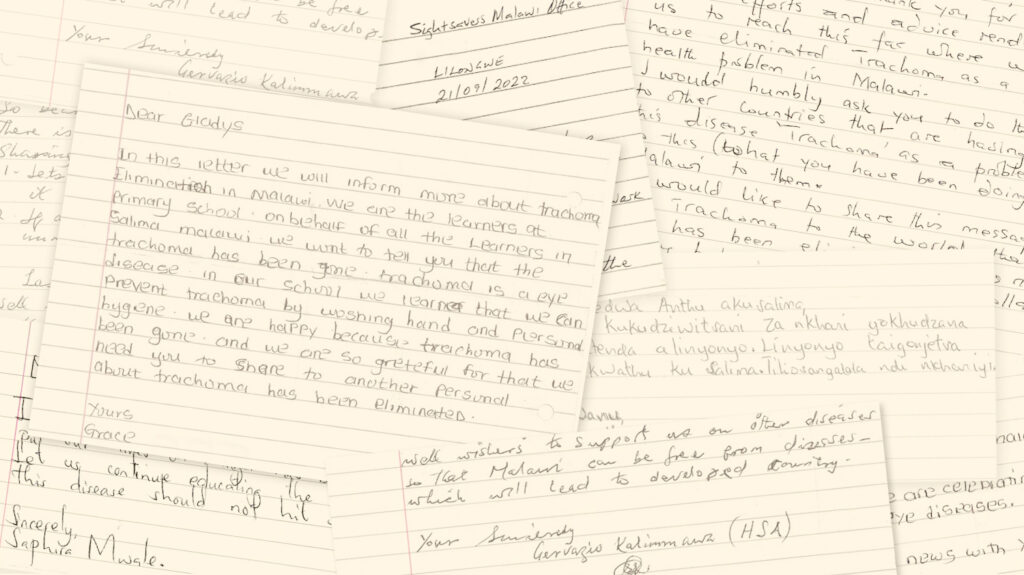 be free
will lead to develop.
Your Sincerely
Gervazio Kalimmawa
Sightsavers Malawi Office
LILONGWE
21/09/2022
you, for
efforts and advice rend
us to reach this far where w
have eliminated Trachoma as a
health problem in Malawi.
I would humbly ask you to do th
to other countries that are having
this disease Trachoma as a proble
this (what you have been doing
Malawi to them.
would like to share this messag
Trachoma to the world tha
has been eli
the
So
There is
Sharing
1. Lets
it
2. If
Dear Gladys
In this letter we will inform more about trachoma
Elimination in Malawi. we are the learners at
Primary school. on behalf of all the Learners in
Salima malawi we want to tell you that the
trachoma has been gone. trachoma is a eye
disease. in our school we learner that we can
Prevent trachoma by washing hand and Personal
hygene. we are happy because trachoma has
been gone. and we are so greteful for that we
need you to share to another personal
about trachoma has been eliminated.
Yours
Grace
edwa Anthu akusalima,
kukudziwitsani za nkhani yokhudzana
enda alinyonyo. Linyonyo
kwathu ku Salima. nkhaniyi.
well wishers to support us on other diseases
so that Malawi can be free from diseases
which will lead to developed country.
Your Sincerely
Gervazio Kalimmawa (HSA)
let us continue educating the
this disease should not hit
Sincerely,
Saphira Mwale.
are celebratin
eye diseases.
news with